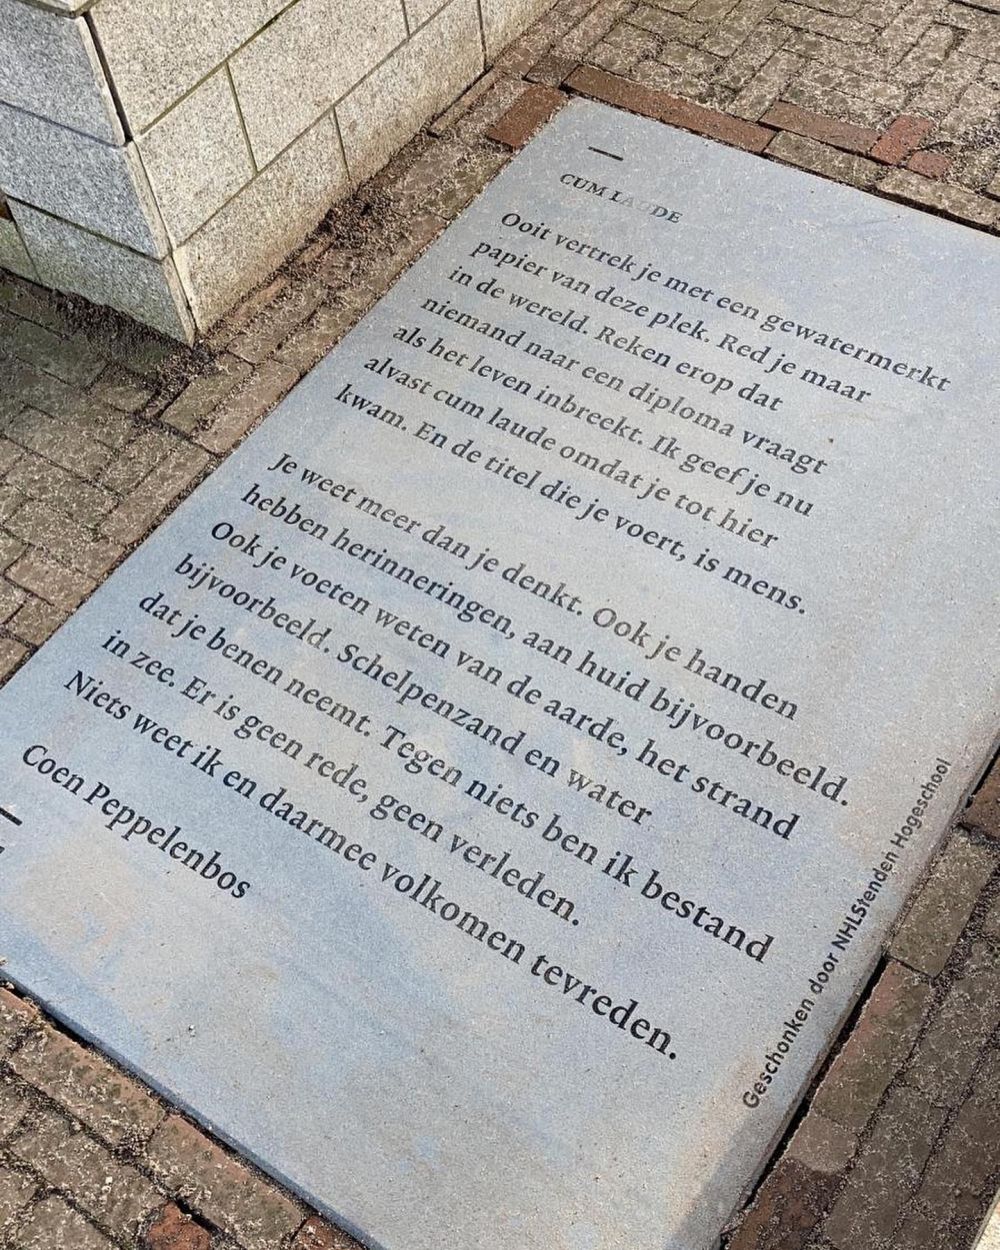 CUM LAUDE
Ooit vertrek je met een gewatermerkt
papier van deze plek. Red je maar
in de wereld. Reken erop dat
niemand naar een diploma vraagt
als het leven inbreekt. Ik geef je nu
alvast cum laude omdat je tot hier
kwam. En de titel die je voert, is mens.
Je weet meer dan je denkt. Ook je handen
hebben herinneringen, aan huid bijvoorbeeld.
Ook je voeten weten van de aarde, het strand
bijvoorbeeld. Schelpenzand en water
dat je benen neemt. Tegen niets ben ik bestand
in zee. Er is geen rede, geen verleden.
Niets weet ik en daarmee volkomen tevreden.
Coen Peppelenbos
Geschonken door NHLStenden Hogeschool